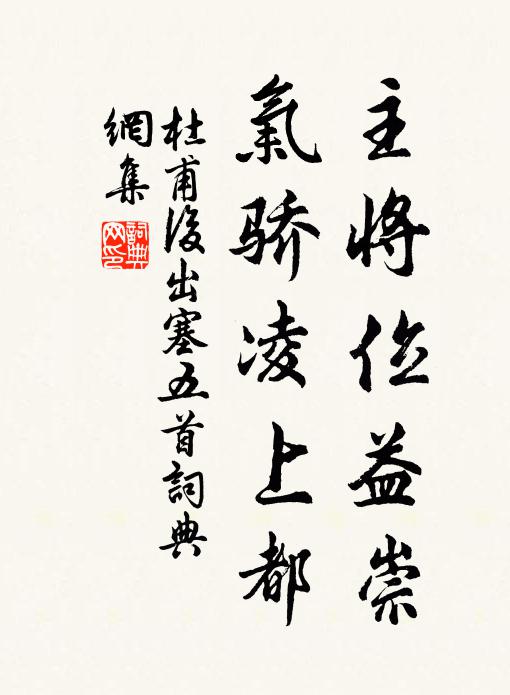 主將位益崇
氣骄凌上都
杜甫後出塞五首詞典
網集
詞典网印